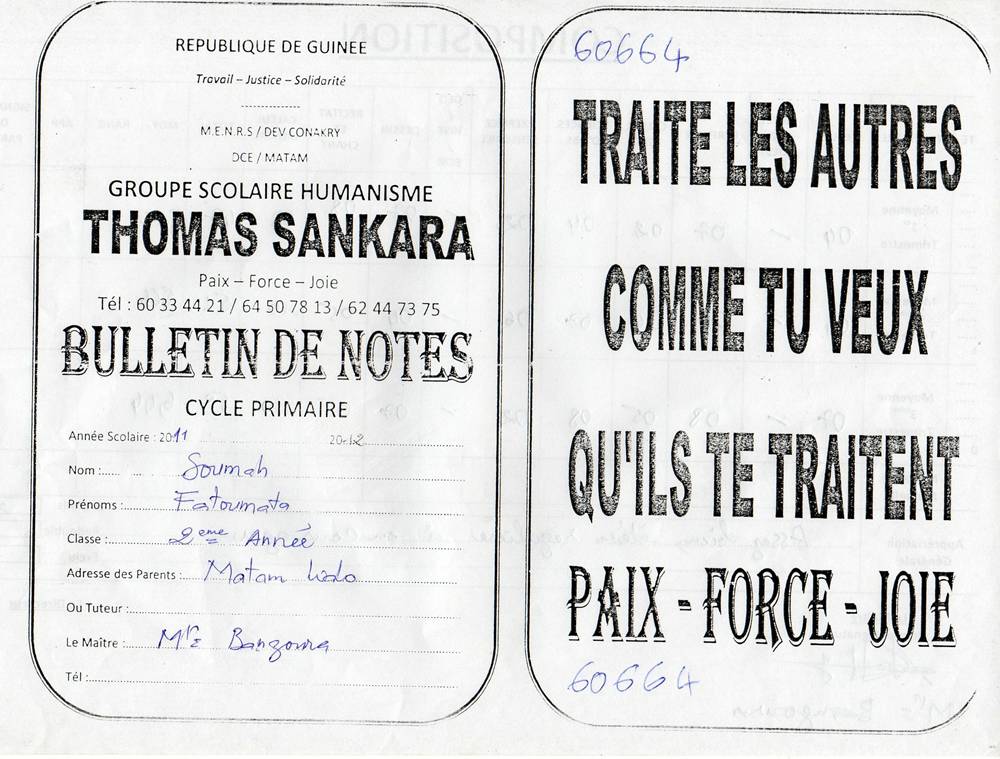 REPUBLIQUE DE GUINEE
Travail – Justice – Solidarité
-------------
M.E.N.R.S / DEV CONAKRY
DCE / MATAM
GROUPE SCOLAIRE HUMANISME
THOMAS SANKARA
Paix – Force – Joie
Tél : 60 33 44 21 / 64 50 78 13 / 62 44 73 75
BULLETIN DE NOTES
CYCLE PRIMAIRE
Année Scolaire : 2011 2012
Nom : Soumah
Prénoms : Fatoumata
Classe : 2eme Année
Adresse des Parents : Matam Lido
Ou Tuteur :
Le Maître : Mr = Bangoura
Tél :
60664
TRAITE LES AUTRES
COMME TU VEUX
QU'ILS TE TRAITENT
PAIX - FORCE - JOIE
60664